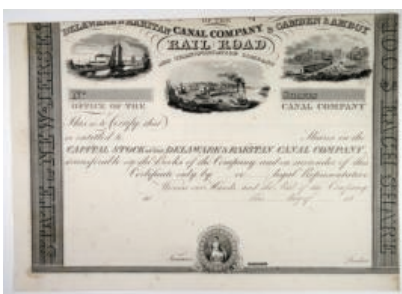 OF THE
DELAWARE & RARITAN CANAL COMPANY & CAMDEN & AMBOY
RAIL ROAD
AND TRANSPORTATION COMPANY
No
SHARES
OFFICE OF THE CANAL COMPANY
This is to Certify that
is entitled to Shares in the
CAPITAL STOCK of the DELAWARE & RARITAN CANAL COMPANY,
transferable on the Books of the Company and on surrender of this
Certificate only by or legal Representative
Witness our Hands and the Seal of the Company
at this day of 18
Treasurer
President
STATE OF NEW-JERSEY
100 $ EACH SHARE